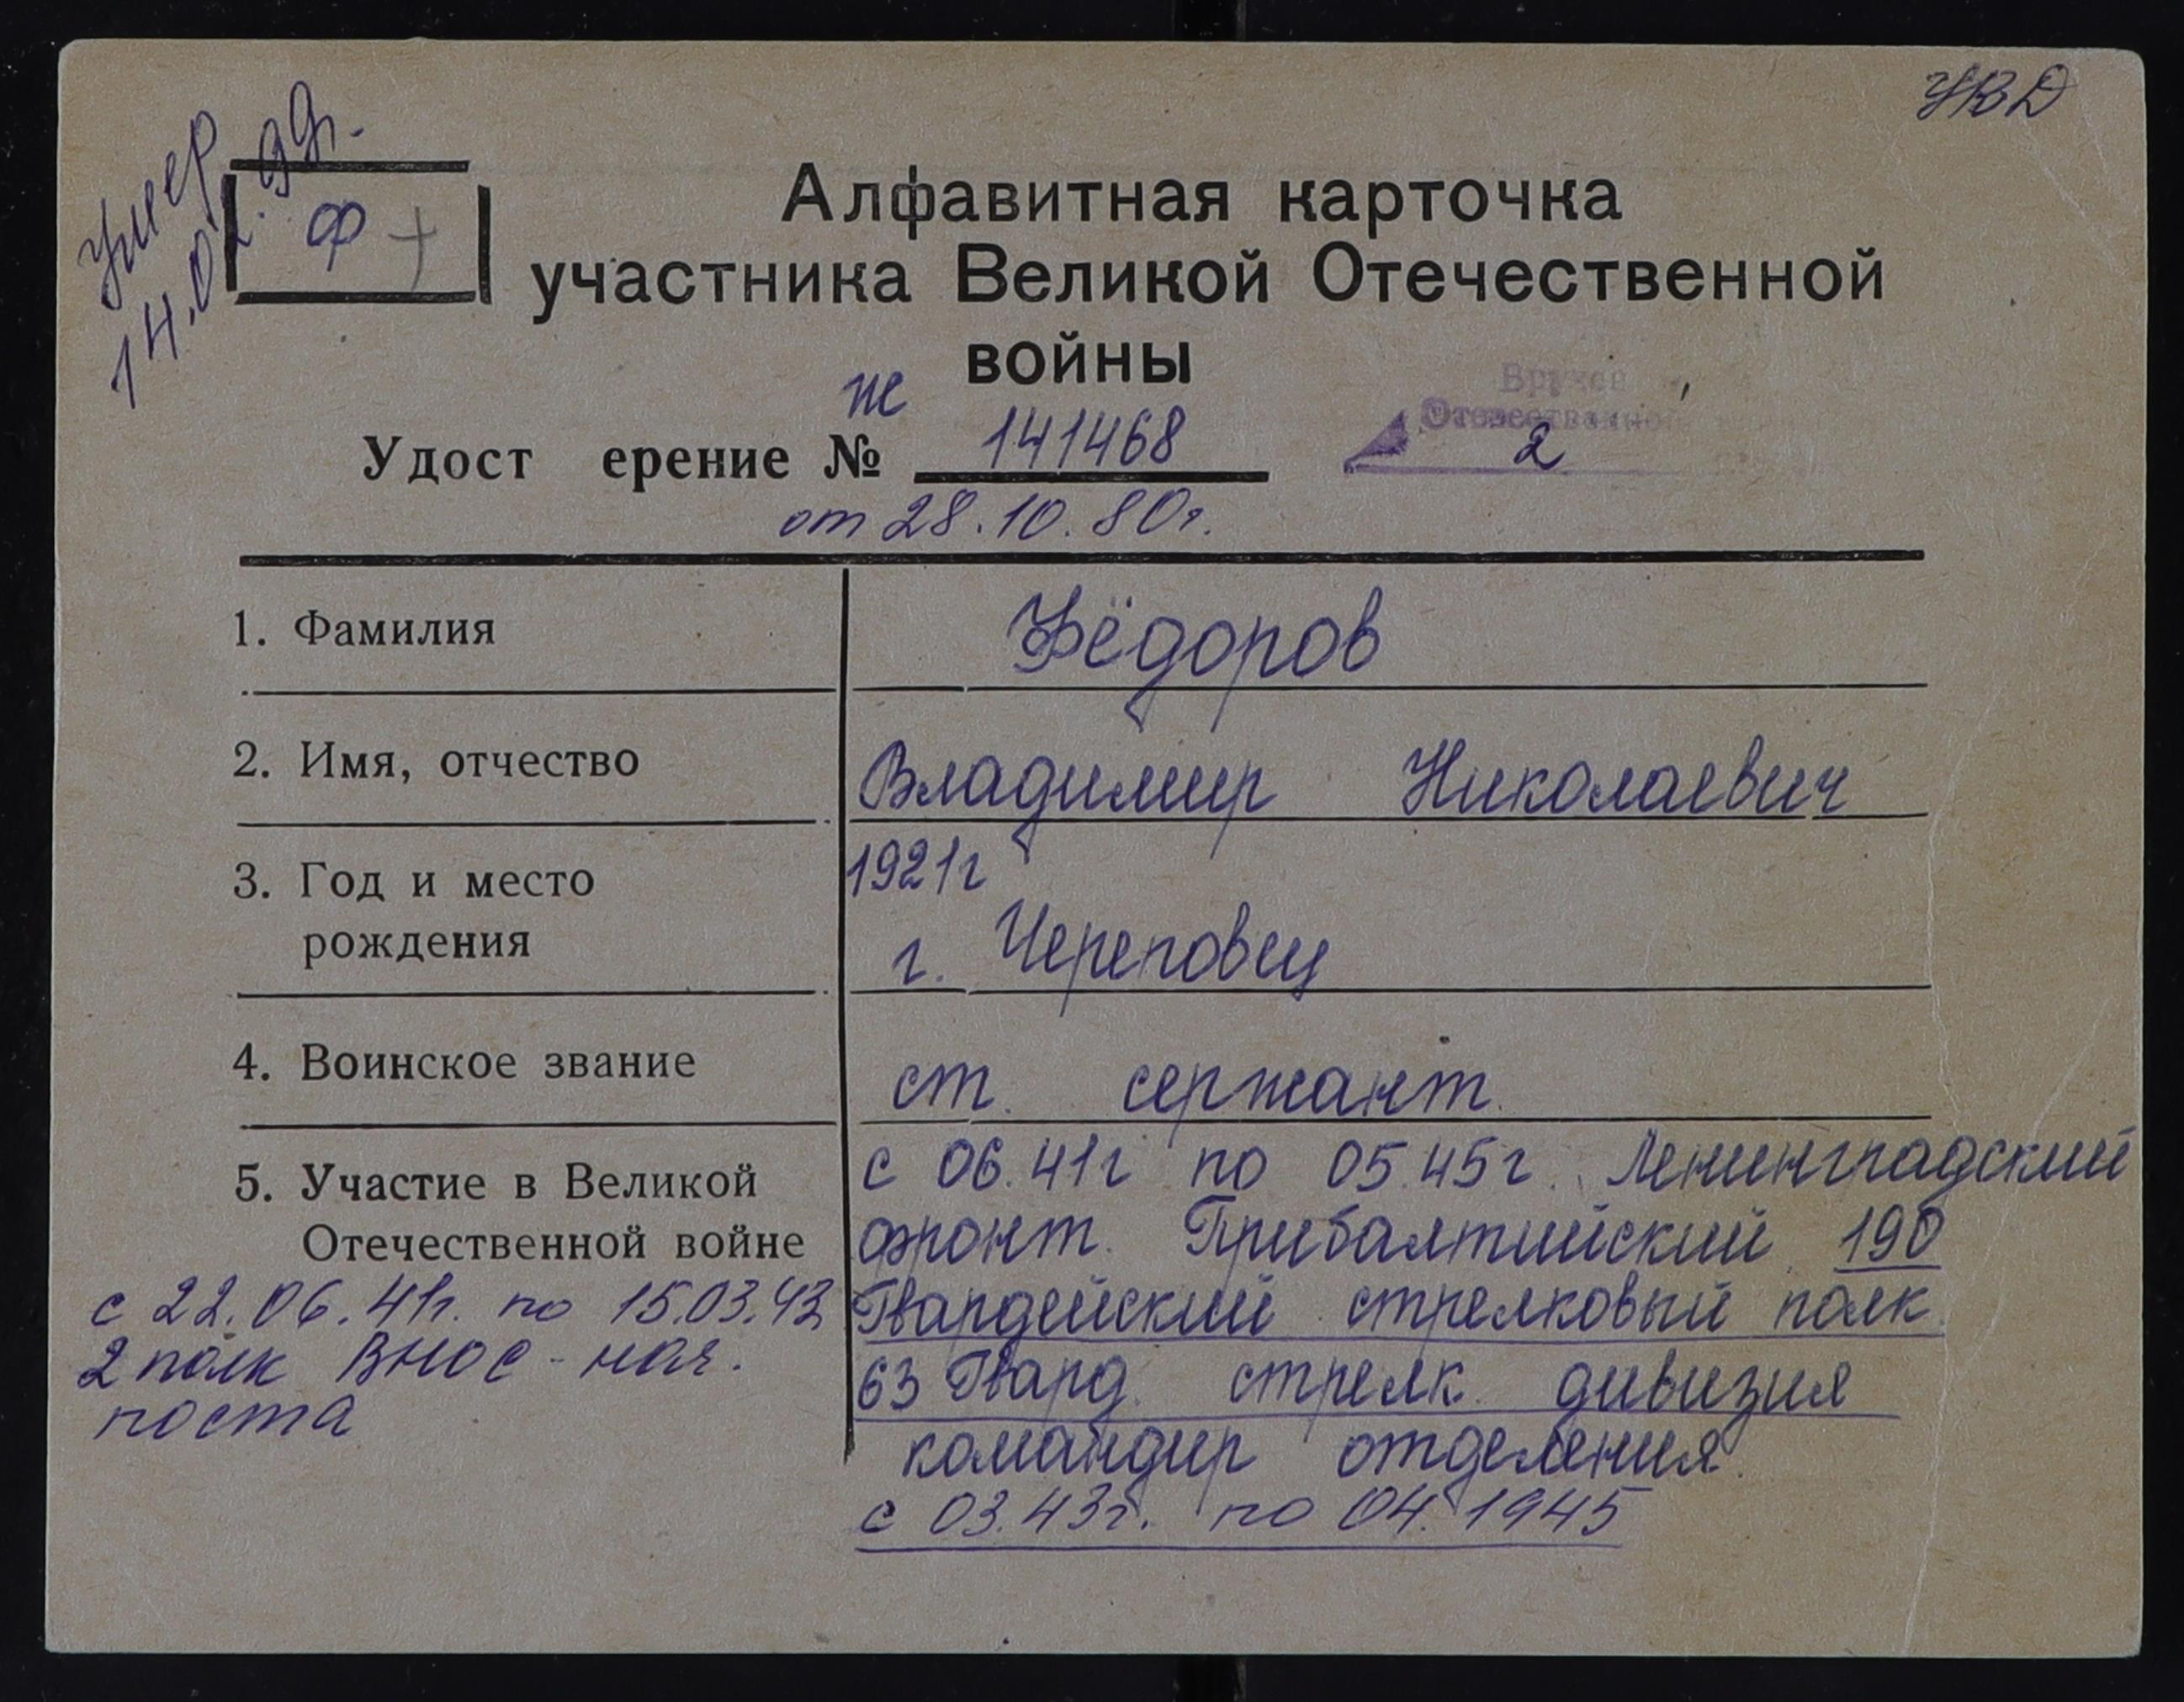 УВД
умер
14.02.99г.
Ф +
Алфавитная карточка
участника Великой Отечественной
войны
Вручен
Отечественной
2
Ж
Удост ерение № 141468
от 28.10.80г.
1. Фамилия
Фёдоров
2. Имя, отчество
Владимир Николаевич
3. Год и место
рождения
1921г
г. Череповец
4. Воинское звание
ст. сержант
5. Участие в Великой
Отечественной войне
с 22.06.41г. по 15.03.43
2 полк ВНОС - нач.
поста
с 06.41г по 05.45г. Ленинградский
фронт. Прибалтийский 190
Гвардейский стрелковый полк
63 Гвард. стрелк. дивизия
командир отделения
с 03.43г. по 04.1945